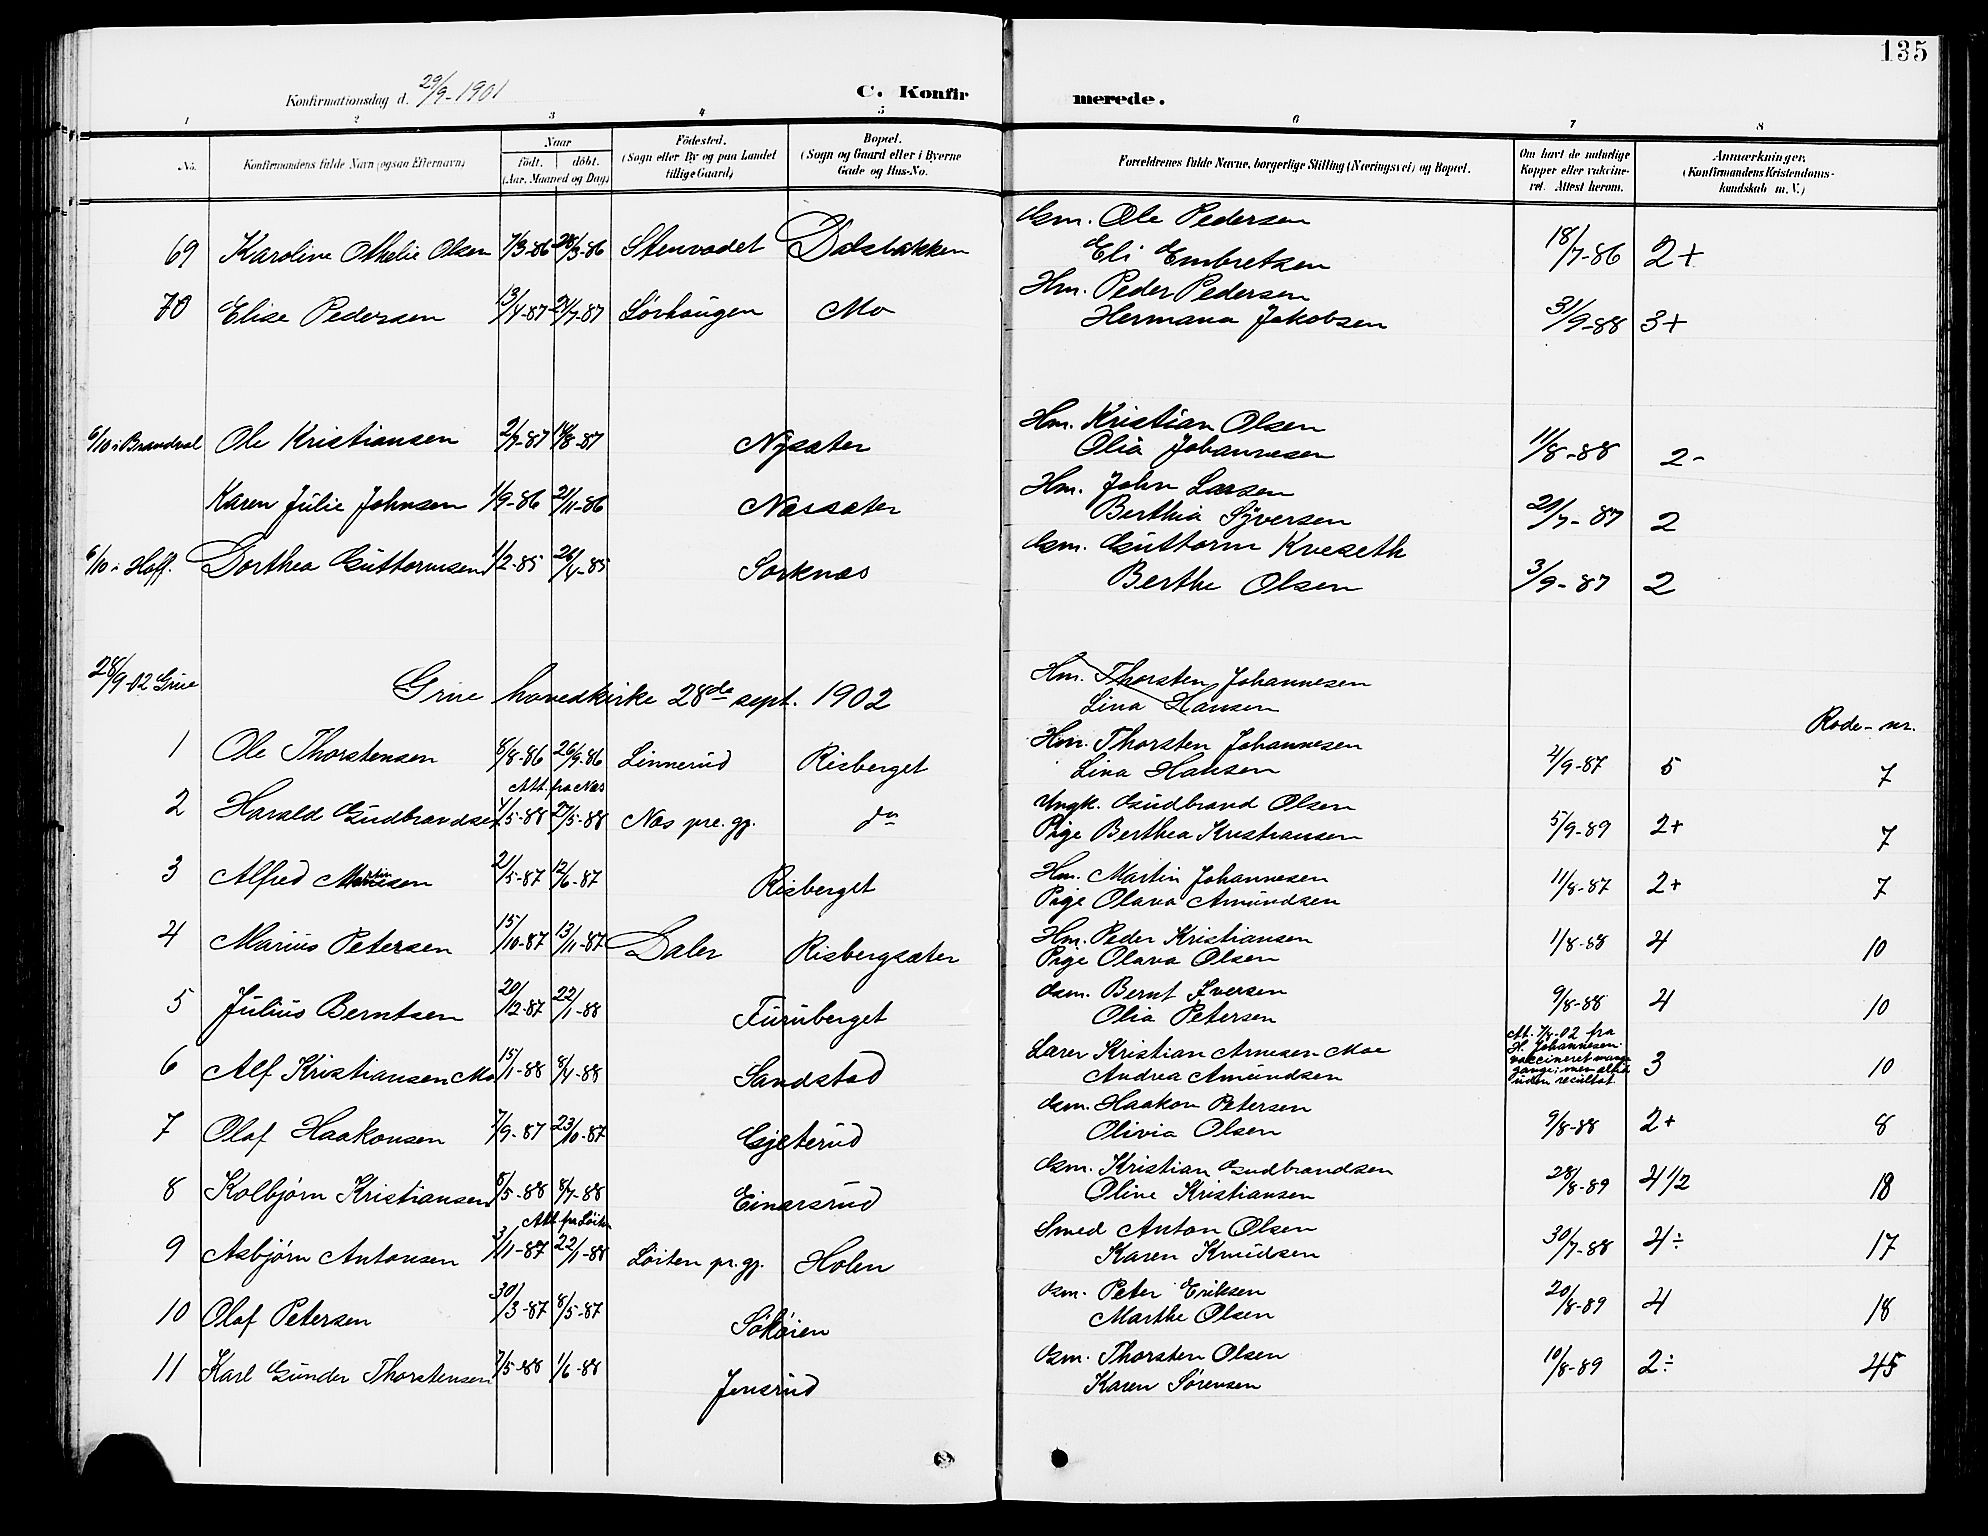 135
Konfirmationsdag d. 29/9-1901
C. Konfirmerede.
1 2 3 4 5 6 7 8
No. Konfirmandens fulde Navn (ogsaa Efternavn) Naar født. døbt. (Aar, Maaned og Dag) Fødested. (Sogn eller By og paa Landet tillige Gaard) Bopæl. (Sogn og Gaard eller i Byerne Gade og Hus-No. Forældrenes fulde Navne, borgerlige Stilling (Næringsvei) og Bopæl. Om havt de naturlige Kopper eller vaccineret. Attest herom. Anmærkninger. (Konfirmandens Kristendomskundskab m. V.)
69 Karoline Othelie Olsen 7/3-86 28/3-86 Stenvadet Dalsbakken Gm. Ole Pedersen 18/7-86 2+
Eli Embretsen
70 Elise Pedersen 13/4-87 24/7-87 Sørhaugen Mo Hm. Peder Pedersen 31/9-88 3+
Hermana Jakobsen
6/10 i Brandval Ole Kristiansen 2/7-87 14/8-87 Nysæter Hm. Kristian Olsen 11/8-88 2-
Olia Johannesen
Karen Julie Johnsen 1/9-86 21/11-86 Næssæter Hm. John Larsen 29/7-87 2
Berthia Syversen
6/10 i Hoff. Dorthea Guttormsen 1/2-85 26/4-85 Sorknæs Gm. Guttorm Kveseth 3/9-87 2
Berthe Olsen
28/9-02 Grue Grue hovedkirke 28de sept. 1902 Hm. Thorsten Johannesen
Lina Hansen
Rode-nr.
1 Ole Thorstensen 8/8-86 26/9-86 Linnerud Risberget Hm. Thorsten Johannesen 4/9-87 5 7
Lina Hansen
Att. fra Næs
2 Harald Gudbrandsen 1/5-88 27/5-88 Næs pre.gj. do Ungk. Gudbrand Olsen 5/9-89 2+ 7
Pige Berthea Kristiansen
3 Alfred Martinsen 21/5-87 12/6-87 Risberget Hm. Martin Johannesen 11/8-87 2+ 7
Pige Olava Amundsen
4 Marius Petersen 15/10-87 13/11-87 Daler Risbergsæter Hm. Peder Kristiansen 1/8-88 4 10
Pige Olava Olsen
5 Julius Berntsen 20/12-87 22/1-88 Furuberget Gsm. Bernt Iversen 9/8-88 4 10
Olia Petersen
6 Alf Kristiansen Mo 15/1-88 8/4-88 Sandstad Lærer Kristian Arnesen Moe At. 7/4-02 fra H. Johannesen vaccineret mange gange; men altid uden resultat 3 10
Andrea Amundsen
7 Olaf Haakonsen 7/9-87 23/10-87 Gjeterud Gsm. Haakon Petersen 9/8-88 2+ 8
Olivia Olsen
8 Kolbjørn Kristiansen 5/5-88 8/7-88 Einarsrud Gsm. Kristian Gudbrandsen 28/8-89 4 1/2 18
Oline Kristiansen
Att. fra Løiten
9 Asbjørn Antonsen 3/11-87 22/1-88 Løiten pr.gj. Holen Smed Anton Olsen 30/7-88 4÷ 17
Karen Knudsen
10 Olaf Petersen 30/3-87 8/5-87 Søkøien Gsm. Peter Eriksen 20/8-89 4 18
Marthe Olsen
11 Karl Gunder Thorstensen 7/5-88 1/6-88 Jensrud Gsm. Thorsten Olsen 10/8-89 2÷ 45
Karen Sørensen